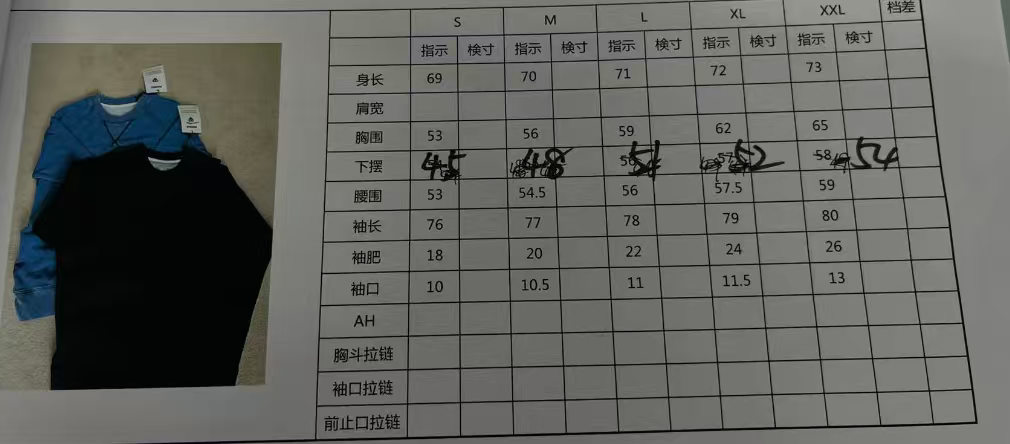 S M L XL XXL 档差
指示 検寸 指示 検寸 指示 検寸 指示 検寸 指示 検寸
身长 69 70 71 72 73
肩宽
胸围 53 56 59 62 65
下摆 45 48 51 57 52 58 54
腰围 53 54.5 56 57.5 59
袖长 76 77 78 79 80
袖肥 18 20 22 24 26
袖口 10 10.5 11 11.5 13
AH
胸斗拉链
袖口拉链
前止口拉链